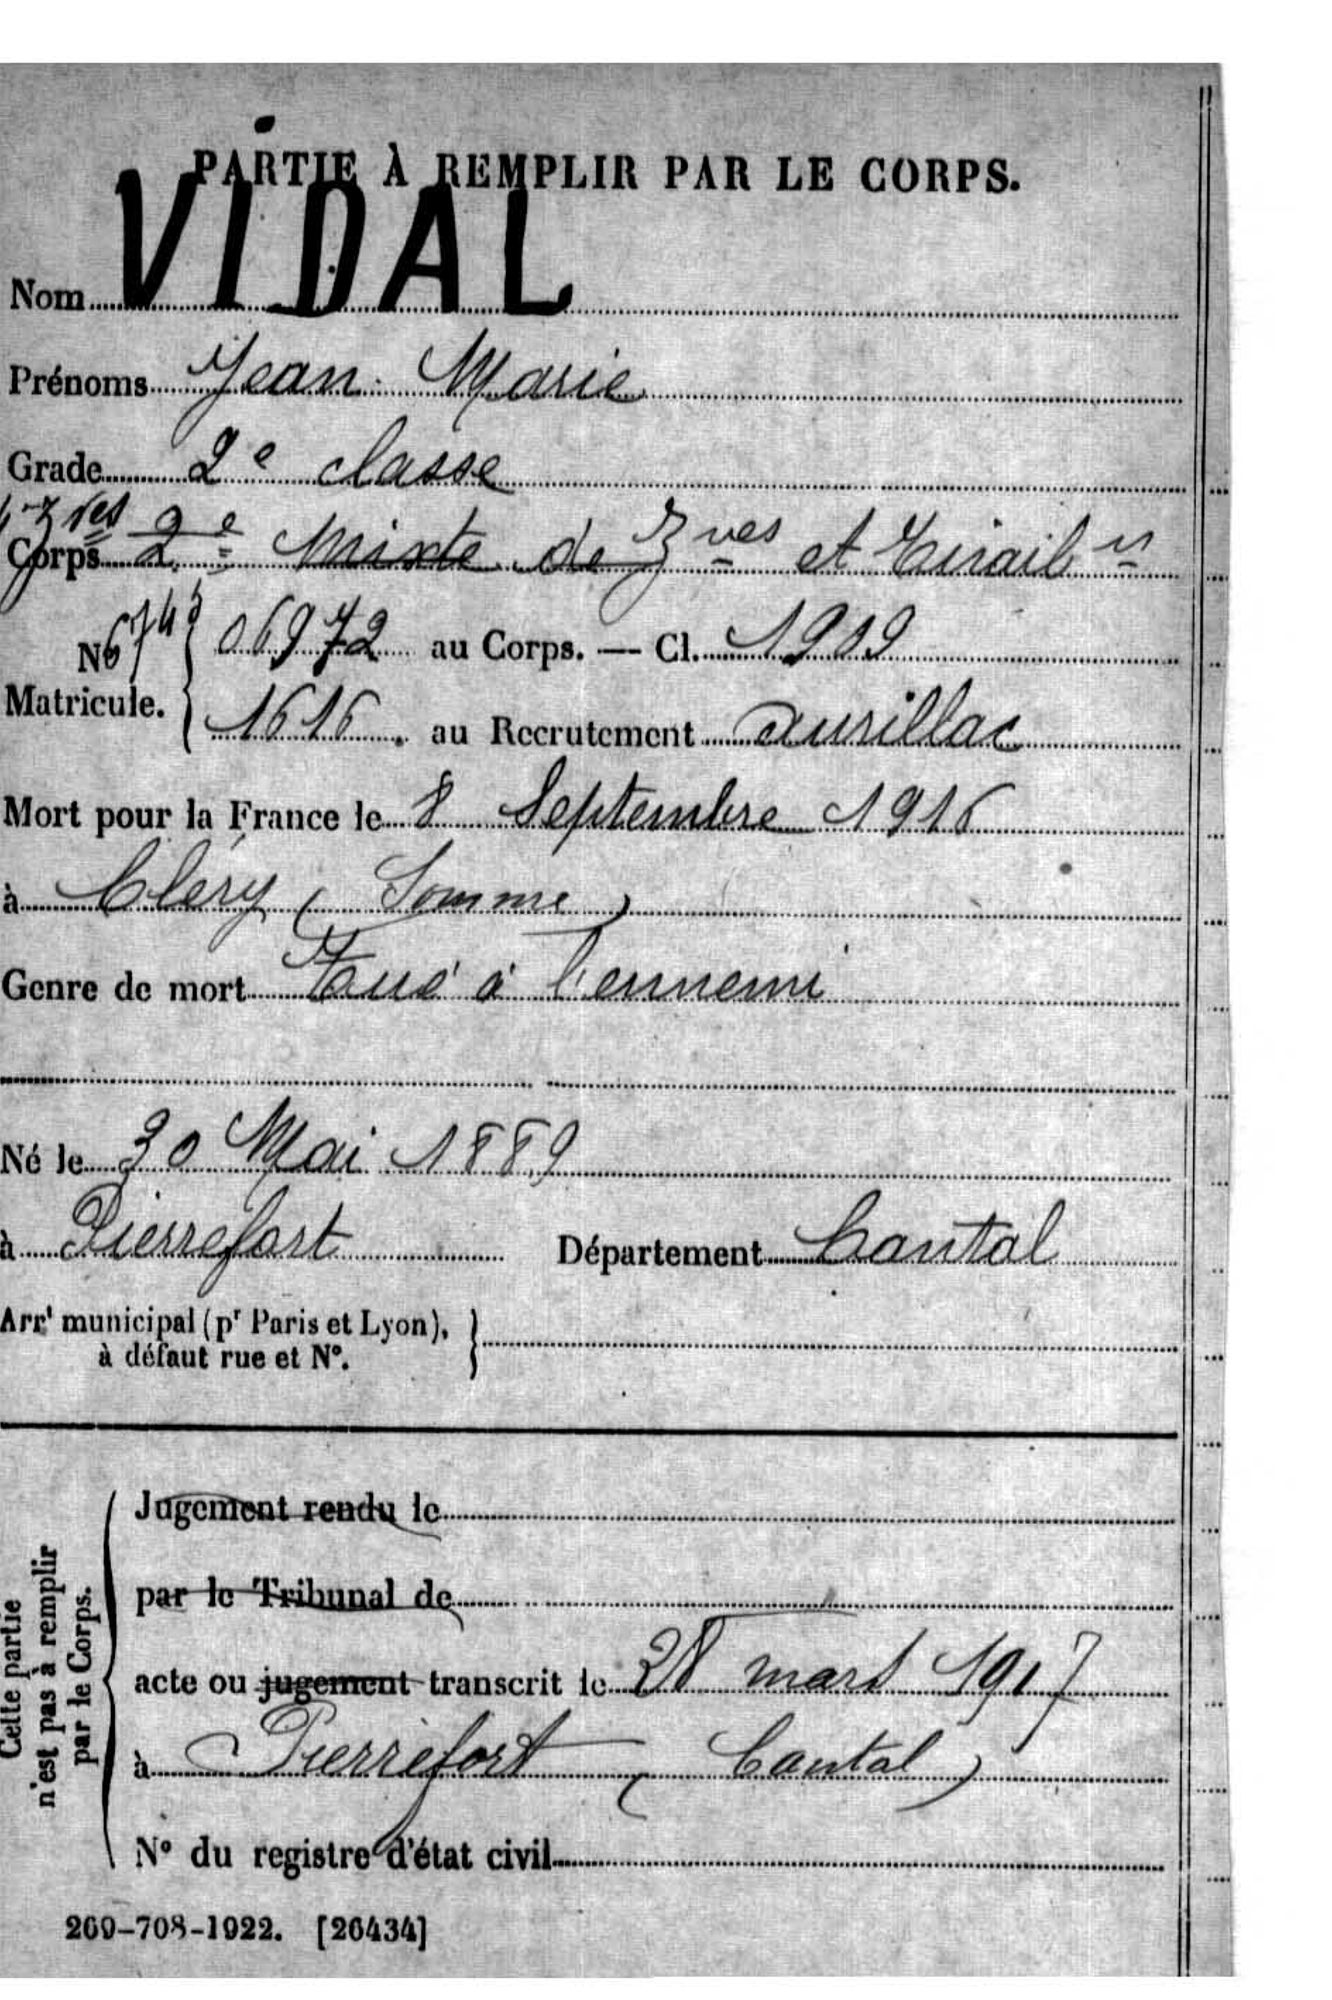 PARTIE À REMPLIR PAR LE CORPS.
Nom VIDAL
Prénoms Jean Marie
Grade 2e classe
Zves
Corps 2e Mixte de Zves et Tirailrs
No 06972 au Corps. — Cl. 1909
Matricule. 1616 au Recrutement Aurillac
Mort pour la France le 8 Septembre 1916
à Cléry (Somme)
Genre de mort Tué à l'ennemi
Né le 30 Mai 1889
à Pierrefort Département Cantal
Arrt municipal (pr Paris et Lyon),
à défaut rue et N°.
Cette partie
n'est pas à remplir
par le Corps.
Jugement rendu le
par le Tribunal de
acte ou jugement transcrit le 28 mars 1917
à Pierrefort (Cantal)
N° du registre d'état civil
269-708-1922. [26434]